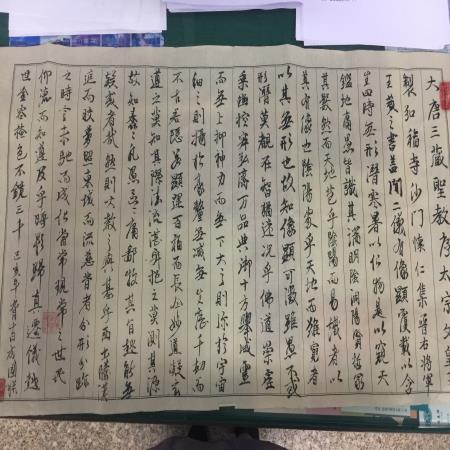 大唐三藏聖教序太宗文皇
製弘福寺沙門懷仁集晉右將軍
王羲之書蓋聞二儀有像顯覆載以含
生四時無形潛寒暑以化物是以窺天
鑑地庸愚皆識其端明陰洞陽賢哲罕窮
其數然而天地苞乎陰陽而易識者以
其有像也陰陽處乎天地而難窮者
以其無形也故知像顯可徵雖愚不惑
形潛莫覩在智猶迷況乎佛道崇虛
乘幽控寂弘濟萬品典御十方舉威靈
而無上抑神力而無下大之則彌於宇宙
細之則攝於毫釐無滅無生歷千劫而
不古若隱若顯運百福而長今妙道凝玄
遵之莫知其際法流湛寂挹之莫測其源
故知蠢蠢凡愚區區庸鄙投其旨趣能無
疑惑者哉然則大教之興基乎西土騰漢
庭而皎夢照東域而流慈昔者分形分跡
之時言未馳而成化當常現常之世民
仰德而知遵及乎晦影歸真遷儀越
世金容掩色不鏡三千 己亥年